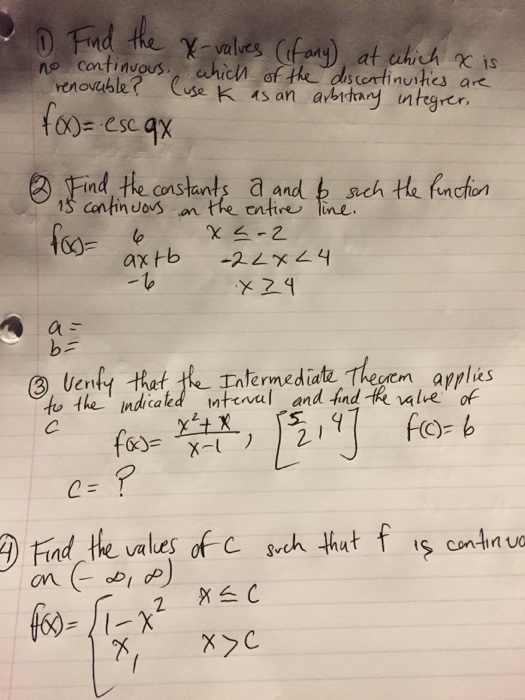 ① Find the x-values (if any) at which x is
no continuous. which of the discontinuities are
removable? (use K as an arbitrary integrer.
f(x)= csc 9x
② Find the constants a and b such the function
is continuous on the entire line.
f(x)= 6 x ≤ -2
ax+b -2<x<4
-6 x ≥ 4
a =
b =
③ Verify that the Intermediate Theorem applies
to the indicated interval and find the value of
c
f(x)= x²+x / x-1 , [5/2, 4] f(c)= 6
c = ?
4) Find the values of c such that f is continuo
on (-∞, ∞)
f(x)= { 1-x² x ≤ c
x, x > c